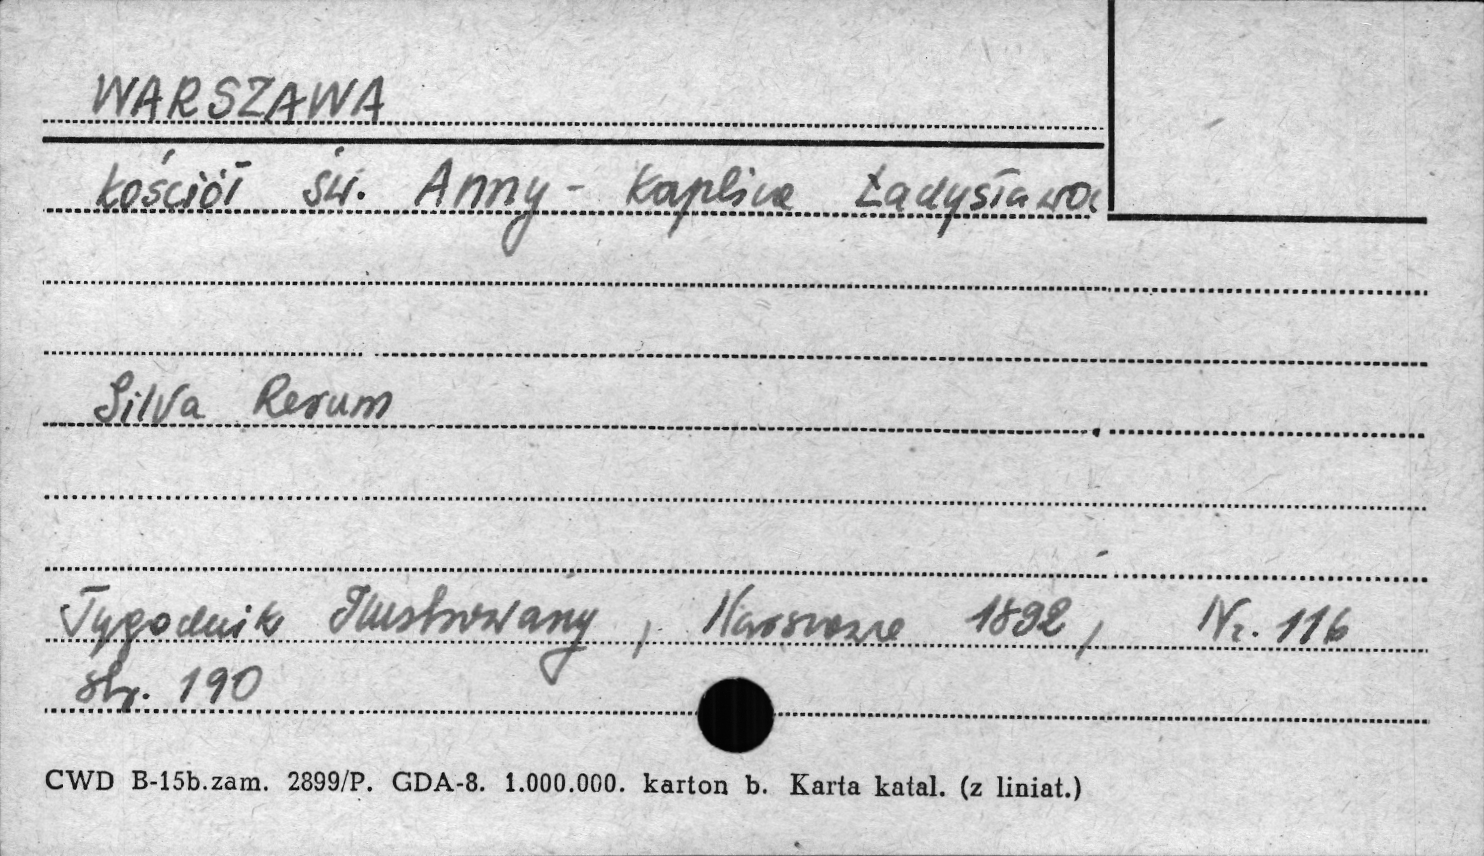 WARSZAWA
Kościół św. Anny - Kaplica Ładysława
Silva Rerum
Tygodnik Ilustrowany, Warszawa 1892, Nr. 116
str. 190
CWD B-15b.zam. 2899/P. GDA-8. 1.000.000. karton b. Karta katal. (z liniat.)